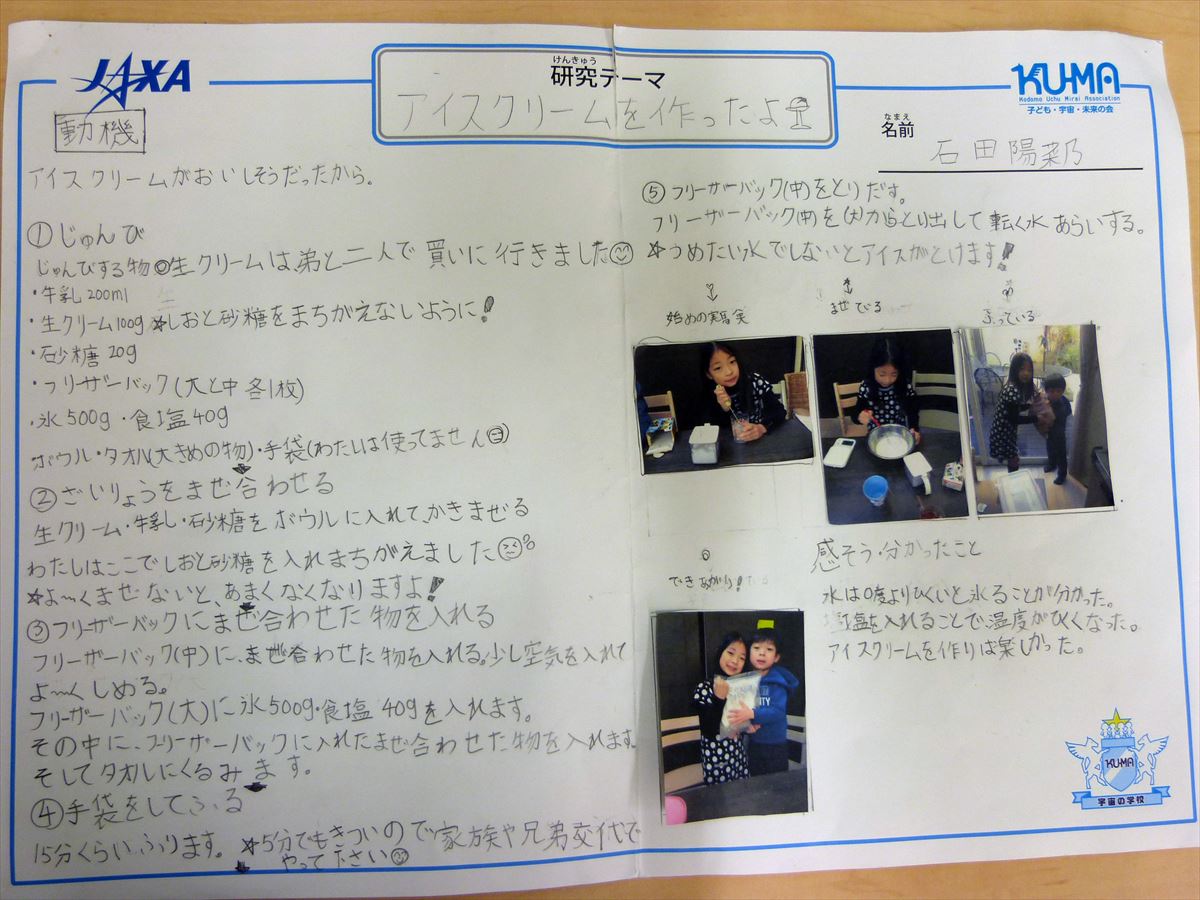 JAXA
けんきゅう
研究テーマ
アイスクリームを作ったよ
KU-MA
Kodomo Uchu Mirai Association
子ども・宇宙・未来の会
なまえ
名前
石田陽菜乃
動機
アイスクリームがおいしそうだったから。
①じゅんび
じゅんびする物◎生クリームは弟と二人で買いに行きました
・牛乳200ml
・生クリーム100g ☆しおと砂糖をまちがえないように!
・砂糖20g
・フリーザーバック(大と中 各1枚)
・氷500g・食塩40g
ボウル・タオル(大きめの物)・手袋(わたしは使ってません)
②ざいりょうをまぜ合わせる
生クリーム・牛乳・砂糖をボウルに入れて、かきまぜる
わたしはここでしおと砂糖を入れまちがえました
☆よ〜くまぜないと、あまくなくなりますよ!
③フリーザーバックにまぜ合わせた物を入れる
フリーザーバック(中)に、まぜ合わせた物を入れる。少し空気を入れて
よ〜くしめる。
フリーザーバック(大)に氷500g・食塩40gを入れます。
その中に、フリーザーバックに入れたまぜ合わせた物を入れます。
そしてタオルにくるみます。
④手袋をしてふる
15分くらいふります。 ☆5分でもきついので家族や兄弟交代で
やって下さい
⑤フリーザーバック(中)をとりだす。
フリーザーバック(中)を(大)からとり出して転く水あらいする。
☆つめたい水でしないとアイスがとけます!
始めの写真
まぜてる
ふっている
できあがり!
感そう・分かったこと
水は0度よりひくいと氷ることが分かった。
塩を入れることで、温度がひくくなった。
アイスクリームを作りは楽しかった。
KU-MA
宇宙の学校